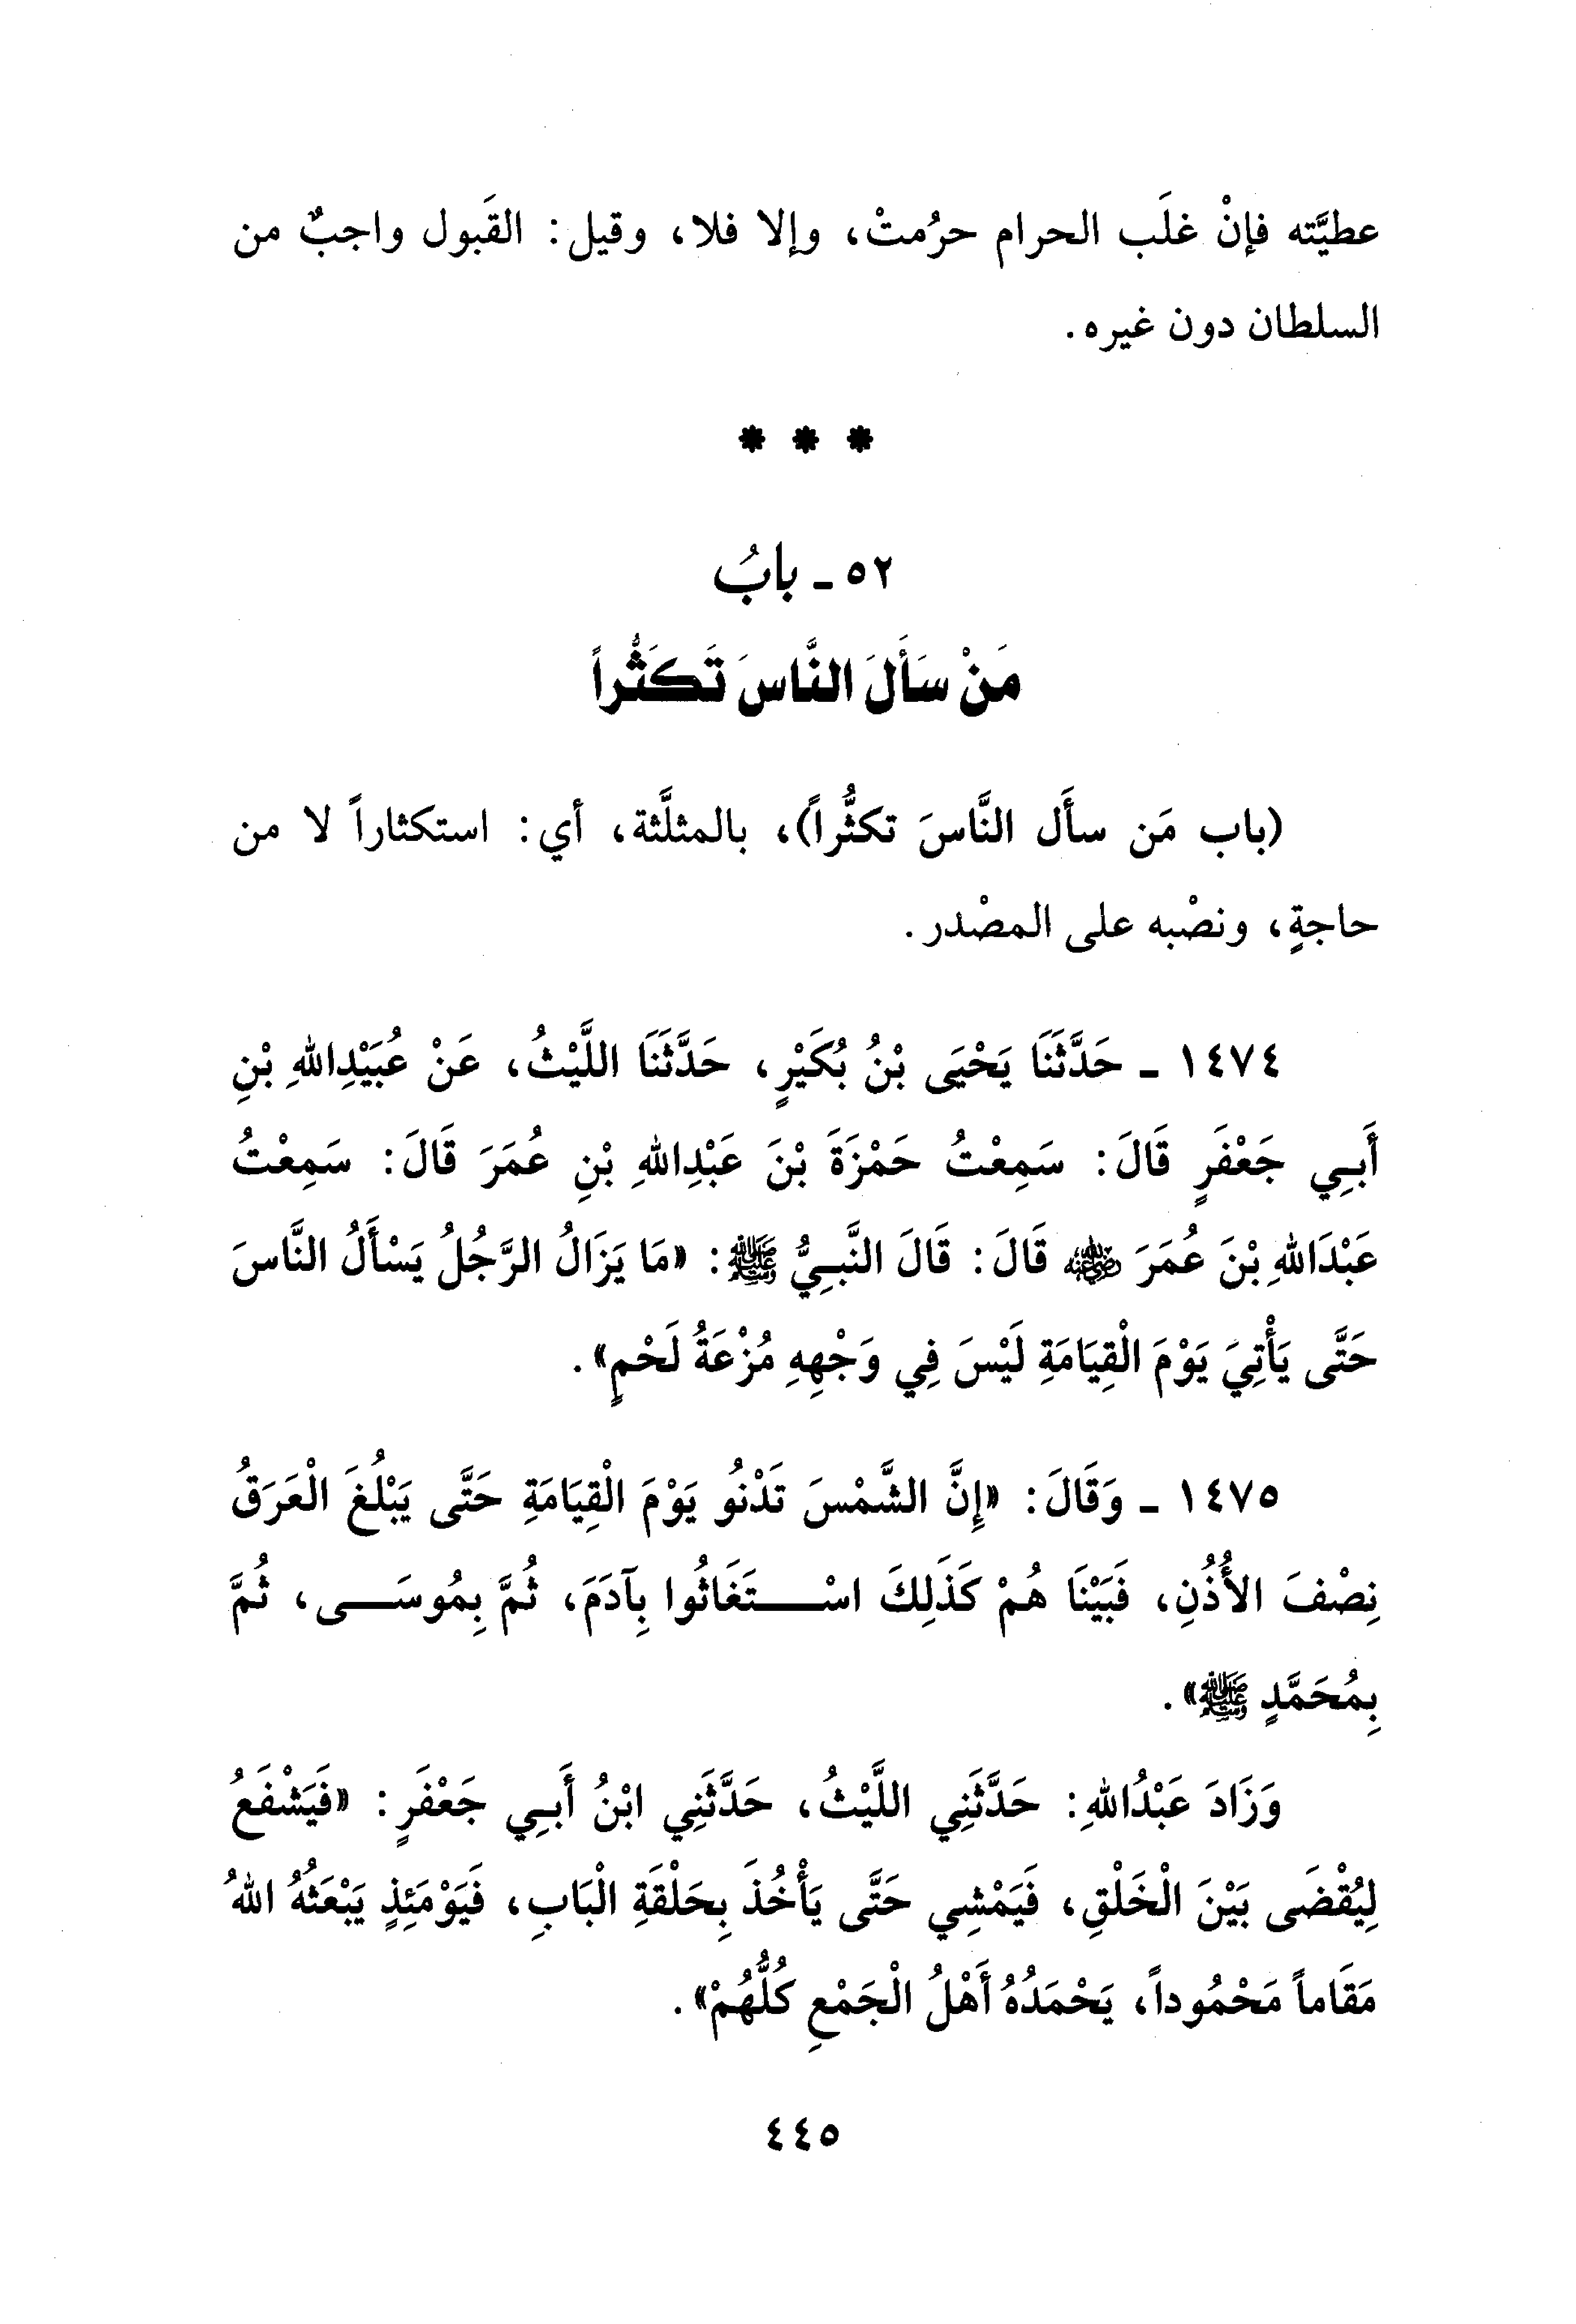 عطيَّته فإنْ غلَب الحرام حرُمتْ، وإلا فلا، وقيل: القَبول واجبٌ من
السلطان دون غيره.
* * *
٥٢ ـ بابُ
مَنْ سَأَلَ النَّاسَ تَكَثُّراً
(باب مَن سأَل النَّاسَ تكثُّراً)، بالمثلَّثة، أي: استكثاراً لا من
حاجةٍ، ونصْبه على المصْدر.
١٤٧٤ ـ حَدَّثَنَا يَحْيَى بْنُ بُكَيْرٍ، حَدَّثَنَا اللَّيْثُ، عَنْ عُبَيْدِاللهِ بْنِ
أَبِي جَعْفَرٍ قَالَ: سَمِعْتُ حَمْزَةَ بْنَ عَبْدِاللهِ بْنِ عُمَرَ قَالَ: سَمِعْتُ
عَبْدَاللهِ بْنَ عُمَرَ رضي الله عنه قَالَ: قَالَ النَّبِيُّ ﷺ: «مَا يَزَالُ الرَّجُلُ يَسْأَلُ النَّاسَ
حَتَّى يَأْتِيَ يَوْمَ الْقِيَامَةِ لَيْسَ فِي وَجْهِهِ مُزْعَةُ لَحْمٍ».
١٤٧٥ ـ وَقَالَ: «إِنَّ الشَّمْسَ تَدْنُو يَوْمَ الْقِيَامَةِ حَتَّى يَبْلُغَ الْعَرَقُ
نِصْفَ الأُذُنِ، فَبَيْنَا هُمْ كَذَلِكَ اسْتَغَاثُوا بِآدَمَ، ثُمَّ بِمُوسَى، ثُمَّ
بِمُحَمَّدٍ ﷺ».
وَزَادَ عَبْدُاللهِ: حَدَّثَنِي اللَّيْثُ، حَدَّثَنِي ابْنُ أَبِي جَعْفَرٍ: «فَيَشْفَعُ
لِيُقْضَى بَيْنَ الْخَلْقِ، فَيَمْشِي حَتَّى يَأْخُذَ بِحَلْقَةِ الْبَابِ، فَيَوْمَئِذٍ يَبْعَثُهُ اللهُ
مَقَاماً مَحْمُوداً، يَحْمَدُهُ أَهْلُ الْجَمْعِ كُلُّهُمْ».
٤٤٥